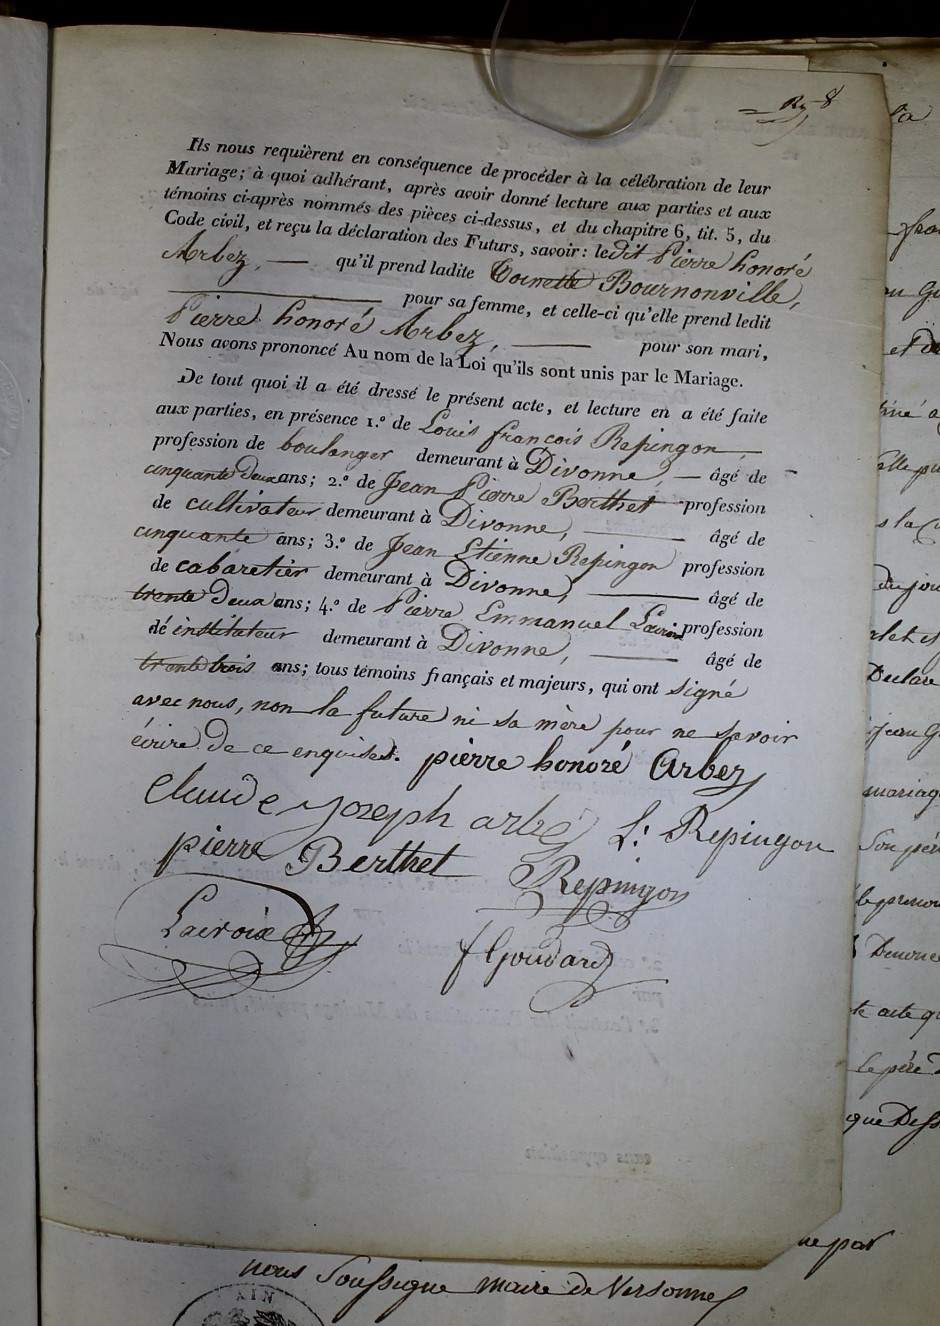 Ils nous requièrent en conséquence de procéder à la célébration de leur
Mariage; à quoi adhérant, après avoir donné lecture aux parties et aux
témoins ci-après nommés des pièces ci-dessus, et du chapitre 6, tit. 5, du
Code civil, et reçu la déclaration des Futurs, savoir: ledit Pierre honoré
Arbez, — qu'il prend ladite Toinette Bournonville,
— pour sa femme, et celle-ci qu'elle prend ledit
Pierre honoré Arbez, — pour son mari,
Nous avons prononcé Au nom de la Loi qu'ils sont unis par le Mariage.
De tout quoi il a été dressé le présent acte, et lecture en a été faite
aux parties, en présence 1.º de Louis françois Repingon,
profession de boulanger demeurant à Divonne, — âgé de
cinquante deux ans; 2.º de Jean Pierre Berthet profession
de cultivateur demeurant à Divonne, — âgé de
cinquante ans; 3.º de Jean Etienne Repingon profession
de cabaretier demeurant à Divonne, — âgé de
trente deux ans; 4.º de Pierre Emmanuel Lacroix profession
dé instituteur demeurant à Divonne, — âgé de
trente trois ans; tous témoins français et majeurs, qui ont signé
avec nous, non la future ni sa mère pour ne savoir
écrire de ce enquises. pierre honoré Arbez
claude joseph arbé L: Repingon
pierre Berthet Repingon
Lacroix Goudard
ue par
nous Soussigné maire de Versonnex
AIN